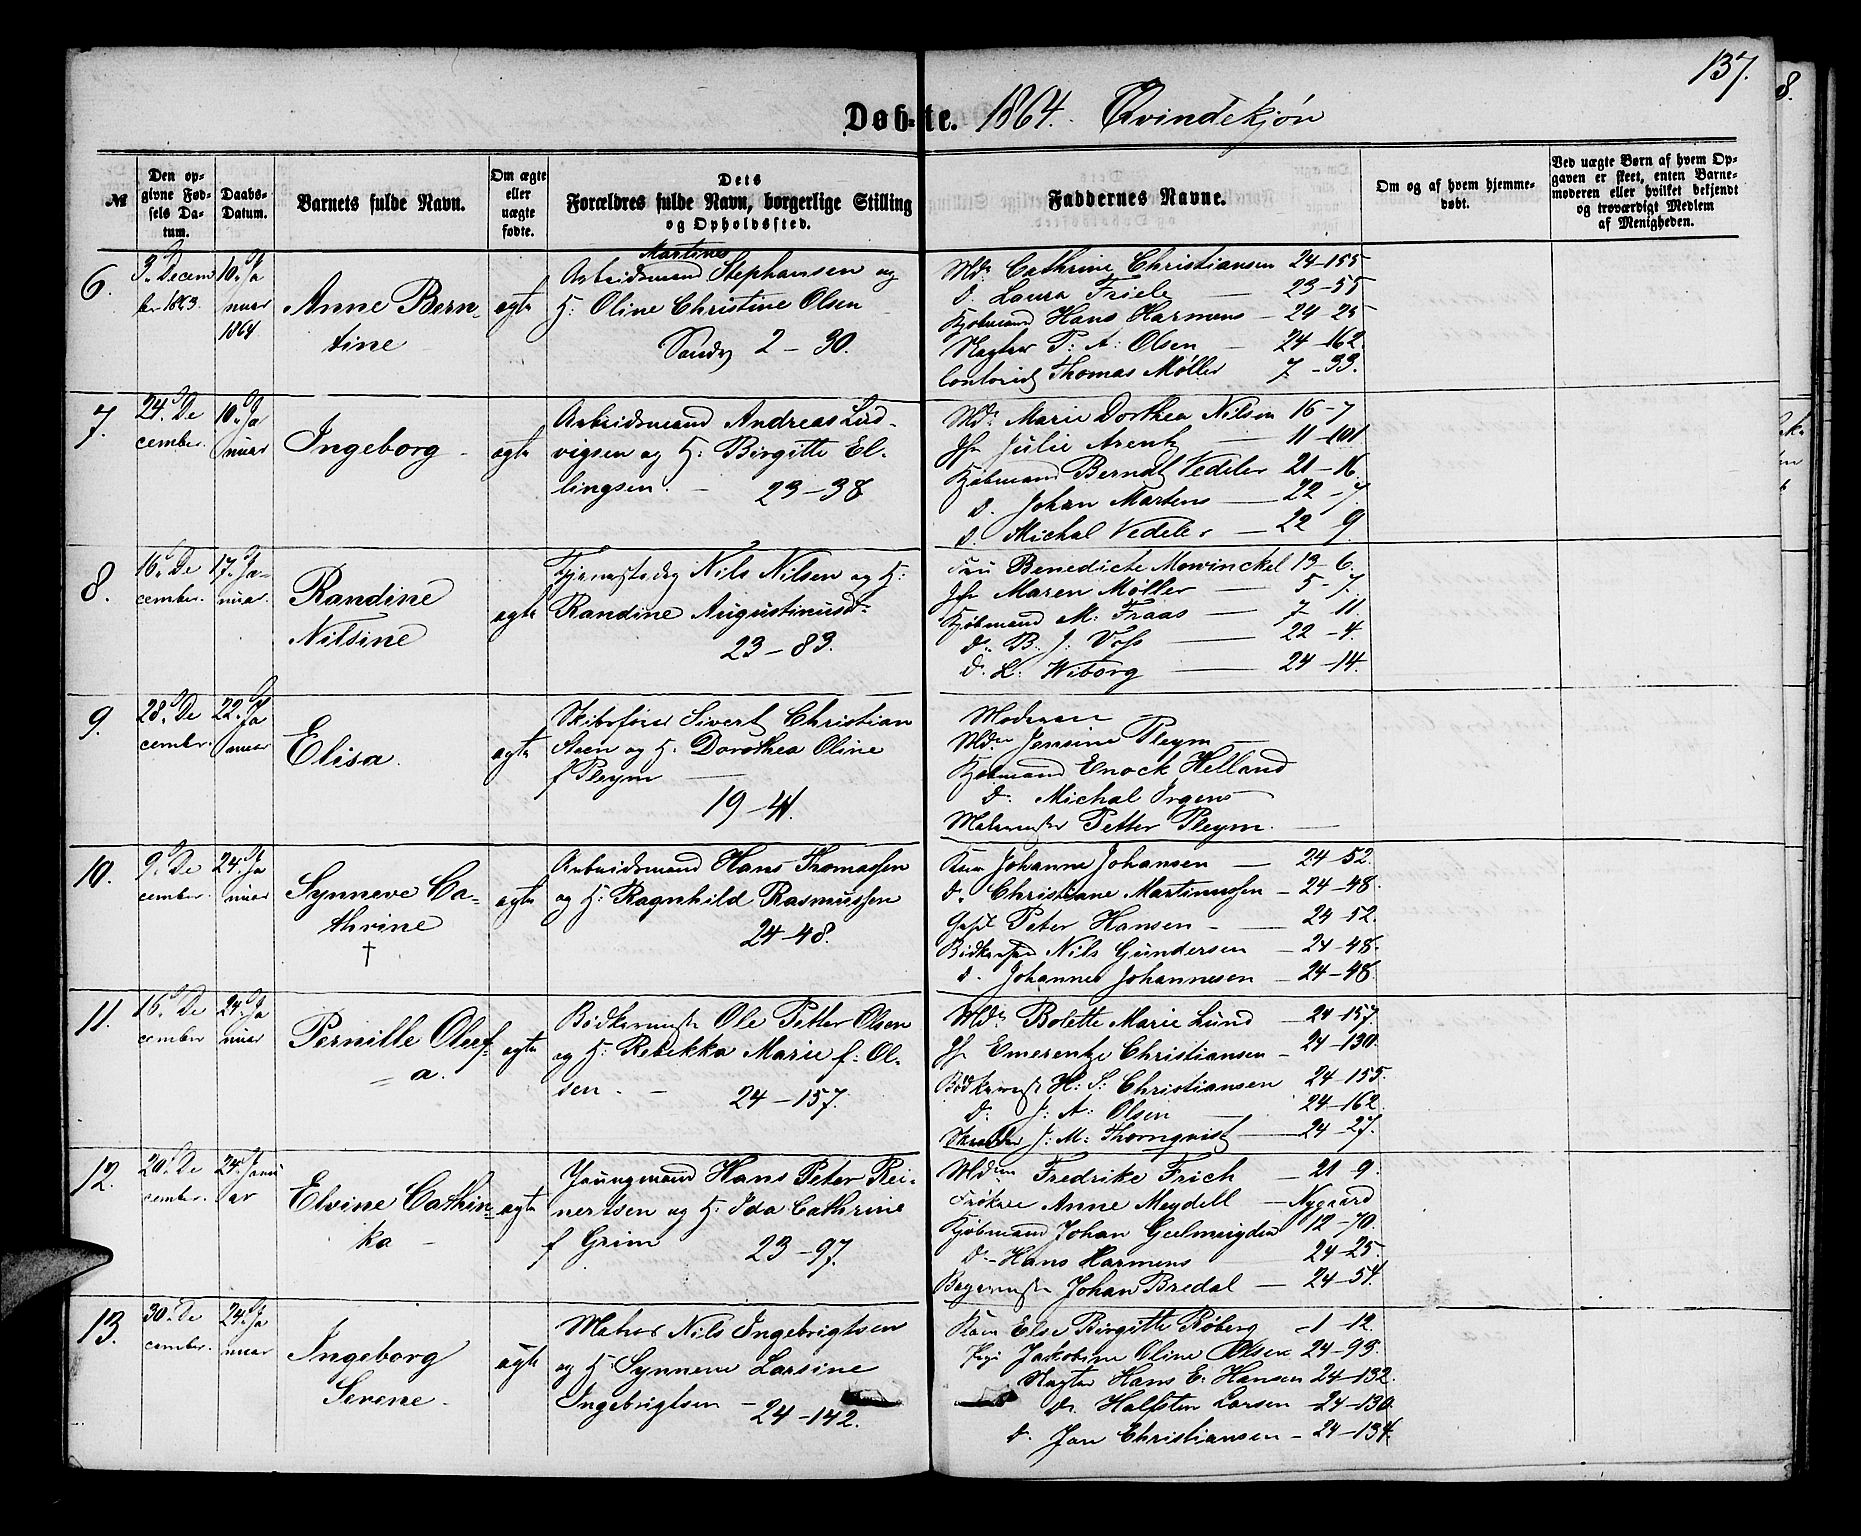 137.
Døbte. 1864. Qvindekjøn
№
Den opgivne Fødsels Datum.
Daabs-Datum.
Barnets fulde Navn.
Om ægte eller uægte fødte.
Dets Forældres fulde Navn, borgerlige Stilling og Opholdssted.
Faddernes Navne.
Om og af hvem hjemmedøbt.
Ved uægte Børn af hvem Opgaven er skeet, enten Barnemoderen eller hvilket bekjendt og troværdigt Medlem af Menigheden.
6.
3. Decem
ber 1863.
10. Ja
nuar
1864
Anne Bern-
tine
ægte
Martines
Arbeidsmand Stephansen og
H: Oline Christine Olsen
Sandv 2-30.
Md. Cathrine Christiansen 24-155
d. Laura Friele 23-55
Kjøbmand Hans Harmens 24-25
P. A: Olsen 24-162.
Contorist Thomas Møller 7-33.
7.
24. De
cember.
10. Ja
nuar
Ingeborg
ægte
Arbeidsmand Andreas Lud-
vigsen og H: Birgitte El-
lingsen. 23-38
Md. Marie Dorthea Nilsen 16-7
Jfr Julie Arentz 11-101
Kjøbmand Berndt Vedeler 21-16
d. Johan Martens 22-7
d. Michal Vedeler 22 9.
8.
16. De
cember.
17. Ja-
nuar.
Randine
Nilsine
ægte
Nils Nilsen og H:
Randine Augustinusd-
23-83.
Fru Benedicte Mowinckel 13-6.
Jfr Maren Møller 5-7.
Kjøbmand M. Fraas 7-11.
d. B. J. Voss 22-4.
d. L. Wiborg 24-14.
9.
28. De
cember.
22. Ja
nuar
Elisa.
ægte
Skibsfører Sivert Christian
Steen og H. Dorothea Oline
f Pleym
19-41.
Moderen
Mdm Jensine Pleym
Kjøbmand Enock Helland
d. Michal Irgens
Malermester Petter Pleym.
10.
9. De
cember.
24. Ja
nuar
Synneve Ca-
thrine
†
ægte
Arbeidsmand Hans Thomassen
og H: Ragnhild Rasmussen
24-48.
Kone Johanne Johansen 24-52.
d. Christiane Martinussen 24-48.
Peter Hansen 24-52.
Nils Gundersen 24-48.
d. Johannes Johannesen 24-48.
11.
16. De
cember
24. Ja
nuar
Pernille Oluf-
a.
ægte
Bødkermester Ole Petter Olsen
og H: Rebekka Marie f: Ol-
sen. 24-157.
Md. Bolette Marie Lund 24-157.
Jfr Emerentze Christiansen 24-130.
Bødkermester H: S: Christiansen 24-155.
d. J: A: Olsen 24-162.
Skrædder J: M: Thornqvist 24-27.
12.
20. De
cember.
24. Janu
ar
Elvine Cathin-
ka
ægte
Hans Peter Rei-
nertsen og H. Ida Cathrine
f Grim 23-97.
Mdm Fredrike Frich 21 9.
Frøken Anne Meydell Nygaard
Kjøbmand Johan Geelmuyden 12-70.
d. Hans Harmens 24-25.
Bagermester Johan Bredal 24-54.
13.
30. De
cember.
24. Ja
nuar
Ingeborg
Serene
ægte
Matros Nils Ingebrigtsen
og H Synneve Larsine
Ingebrigtsen 24-142.
Kone Else Birgitte Røberg 1-12.
Pige Jakobine Oline Olsen 24-93.
Hans E. Hansen 24-132.
d. Halfsten Larsen 24-130.
d. Jan Christiansen 24-134.
8.